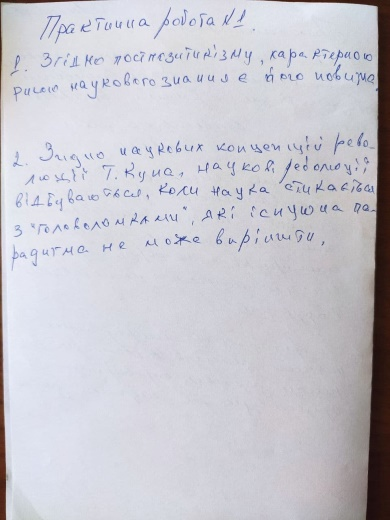 Практична робота №1.
1. Згідно постпозитивізму, характерною
рисою наукового знання є його новизна.
2. Згідно наукових концепцій рево-
люції Т. Куна, наукові революції
відбуваються, коли наука стикається
з "головоломками", які існуюча па-
радигма не може вирішити.